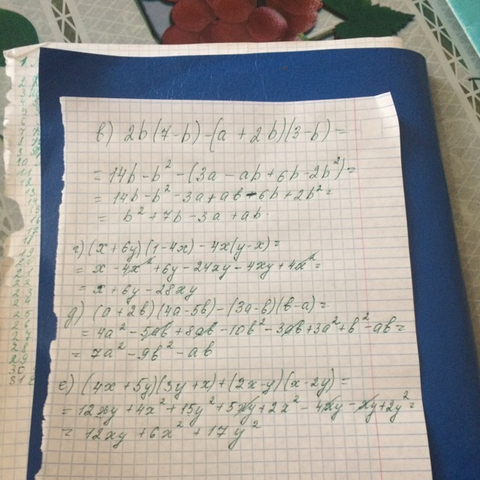 в) 2b(7-b)-(a+2b)(3-b)=
= 14b-b²-(3a-ab+6b-2b²)=
= 14b-b²-3a+ab-6b+2b²=
= b²+7b-3a+ab.
г) (x+6y)(1-4x)-4x(y-x)=
= x-4x²+6y-24xy-4xy+4x²=
= x+6y-28xy
д) (a+2b)(4a-5b)-(3a-b)(b-a)=
= 4a²-5ab+8ab-10b²-3ab+3a²+b²-ab=
= 7a²-9b²-ab
е) (4x+5y)(3y+x)+(2x-y)(x-2y)=
= 12xy+4x²+15y²+5xy+2x²-4xy-xy+2y²=
= 12xy+6x²+17y²
29
30